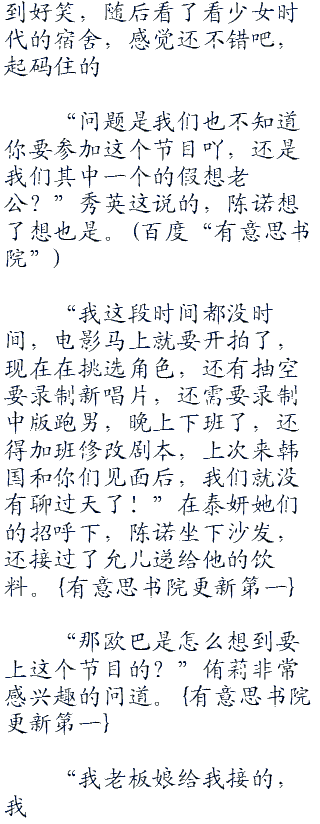 到好笑，随后看了看少女时
代的宿舍，感觉还不错吧，
起码住的
“问题是我们也不知道
你要参加这个节目吖，还是
我们其中一个的假想老
公？”秀英这说的，陈诺想
了想也是。(百度“有意思书
院”)
“我这段时间都没时
间，电影马上就要开拍了，
现在在挑选角色，还有抽空
要录制新唱片，还需要录制
中版跑男，晚上下班了，还
得加班修改剧本，上次来韩
国和你们见面后，我们就没
有聊过天了！”在泰妍她们
的招呼下，陈诺坐下沙发，
还接过了允儿递给他的饮
料。{有意思书院更新第一}
“那欧巴是怎么想到要
上这个节目的？”侑莉非常
感兴趣的问道。{有意思书院
更新第一}
“我老板娘给我接的，
我